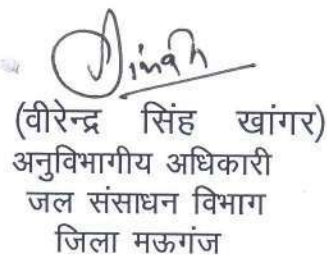 Singh
(वीरेन्द्र सिंह खांगर)
अनुविभागीय अधिकारी
जल संसाधन विभाग
जिला मऊगंज